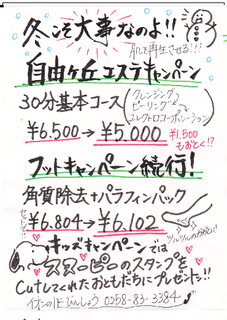 冬こそ大事なのよ!!
肌を再生させる!!!
自由ヶ丘エステキャンペーン
30分基本コース(クレンジング
ピーリング
エレクトロコーポレーション)
¥6.500→¥5.000 ¥1.500
もおとく!?
フットキャンペーン続行!
角質除去+パラフィンパック
¥6.804→¥6.102
ツルツルのかかとに!
キッズキャンペーンでは
スヌーピーのスタンプを
Cutしてくれたおともだちにプレゼント!!
0258-83-3384